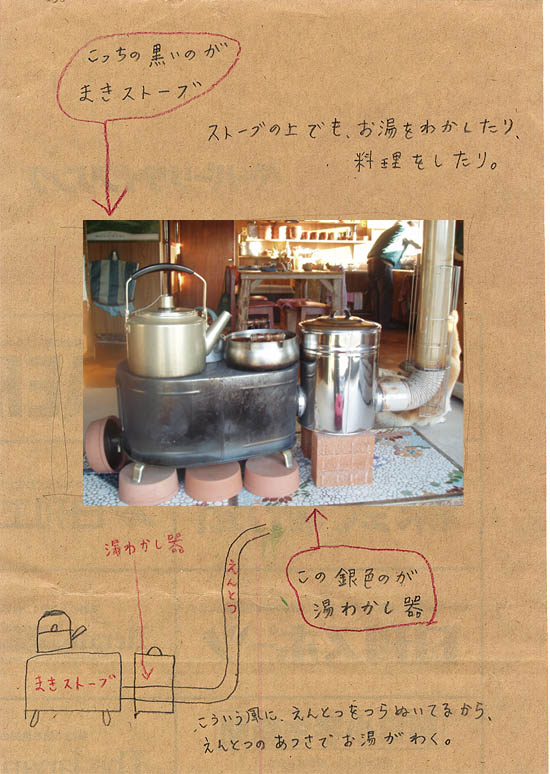 こっちの黒いのが
まきストーブ
ストーブの上でも、お湯をわかしたり、
料理をしたり。
湯わかし器
えんとつ
この銀色のが
湯わかし器
まきストーブ
こういう風に、えんとつをつらぬいてるから、
えんとつのあつさでお湯がわく。